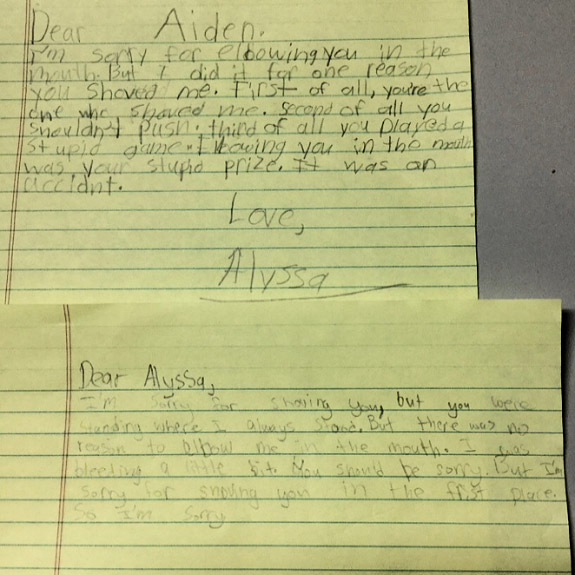 Dear Aiden.
I'm sorry for elbowing you in the
mouth. But I did it for one reason
you shoved me. First of all, you're the
one who shoved me. second of all you
shouldn't push. third of all you played a
stupid game. Elbowing you in the mouth
was your stupid prize. It was an
accidnt.
Love,
Alyssa
Dear Alyssa,
I'm sorry for shoving you, but you were
standing where I always stand. But there was no
reason to elbow me in the mouth. I was
bleeding a little bit. You should be sorry. But I'm
sorry for shoving you in the first place.
So I'm sorry